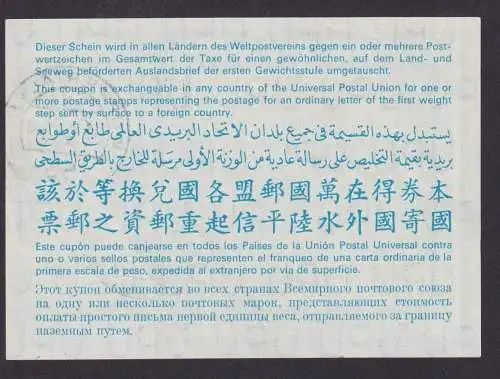 Dieser Schein wird in allen Ländern des Weltpostvereins gegen ein oder mehrere Post-
wertzeichen im Gesamtwert der Taxe für einen gewöhnlichen, auf dem Land- und
Seeweg beförderten Auslandsbrief der ersten Gewichtsstufe umgetauscht.
This coupon is exchangeable in any country of the Universal Postal Union for one or
more postage stamps representing the postage for an ordinary letter of the first weight
step sent by surface to a foreign country.
يستبدل بهذه القسيمة في جميع بلدان الاتحاد البريدى العالمى طابع أو طوابع
بريدية بقيمة التخليص على رسالة عادية من الوزنة الأولى مرسلة للخارج بالطريق السطحى
本券得在萬國郵盟各國兌換等於該
國寄國外水陸平信起重郵資之郵票
Este cupón puede canjearse en todos los Países de la Unión Postal Universal contra
uno o varios sellos postales que representen el franqueo de una carta ordinaria de la
primera escala de peso, expedida al extranjero por vía de superficie.
Этот купон обменивается во всех странах Всемирного почтового союза
на одну или несколько почтовых марок, представляющих стоимость
оплаты простого письма первой единицы веса, отправляемого за границу
наземным путем.